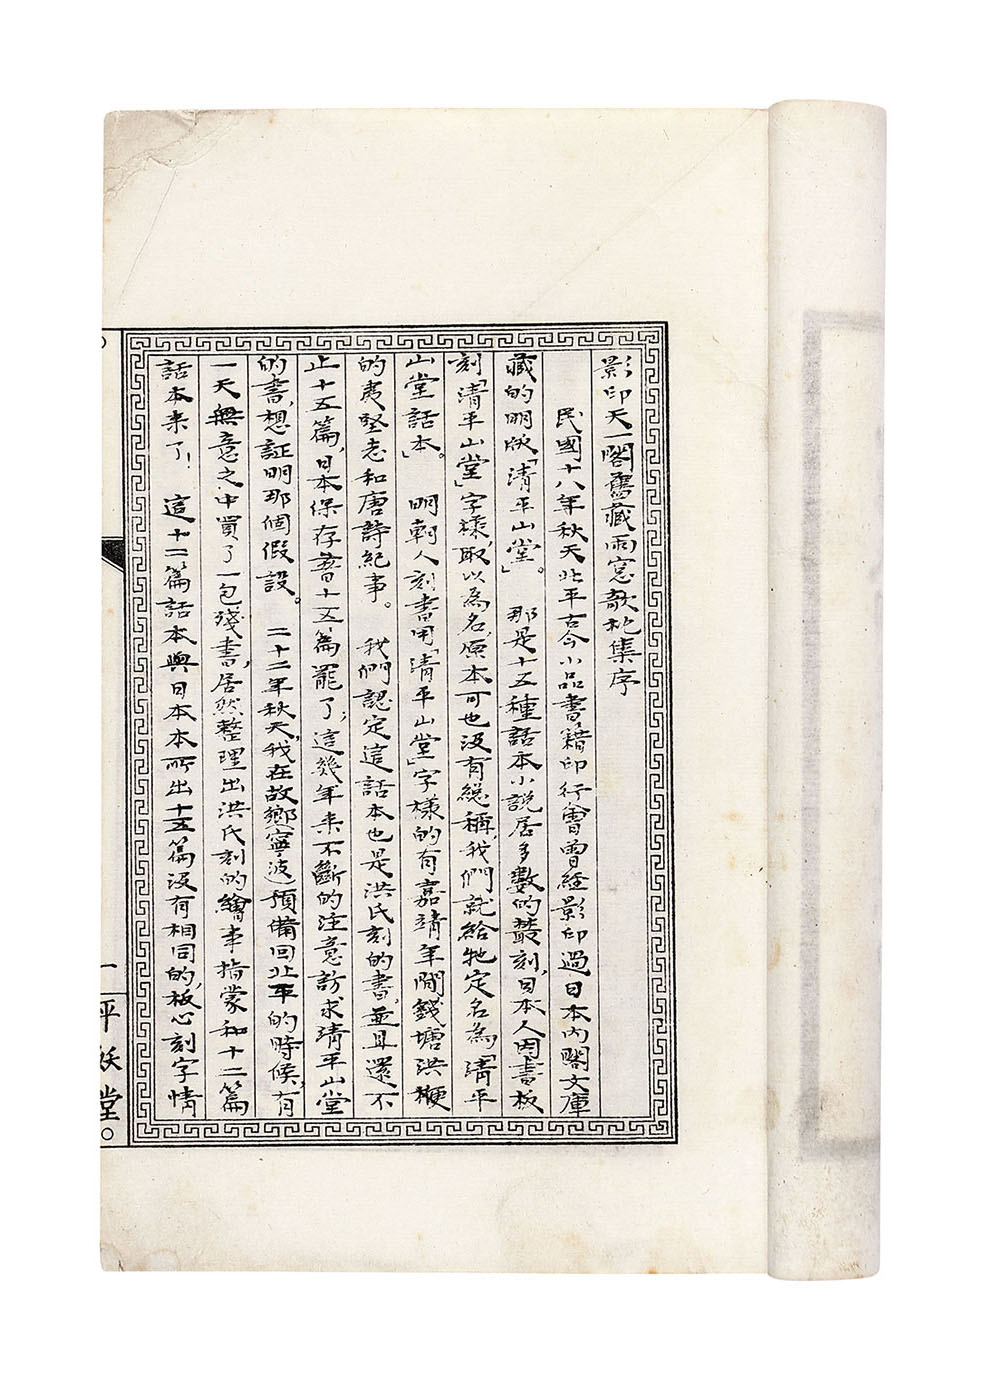 影印天一閣舊藏雨窓欹枕集序
民國十八年秋天北平古今小品書籍印行會曾經影印過日本內閣文庫
藏的明版「清平山堂」。那是十五種話本小說居多數的叢刻,日本人因書板
刻「清平山堂」字樣,取以為名,原本可也沒有總稱,我們就給牠定名為「清平
山堂話本」。明朝人刻書用「清平山堂」字樣的有嘉靖年間錢塘洪楩
的夷堅志和唐詩紀事。我們認定這話本也是洪氏刻的書,並且還不
止十五篇,日本保存着十五篇罷了,這幾年來不斷的注意訪求清平山堂
的書,想証明那個假設。二十二年秋天,我在故鄉(寧波)預備回北平的時候,有
一天無意之中買了一包殘書,居然整理出洪氏刻的繪事指蒙和十二篇
話本来了!這十二篇話本與日本本所出十五篇沒有相同的,板心刻字情
一平妖堂